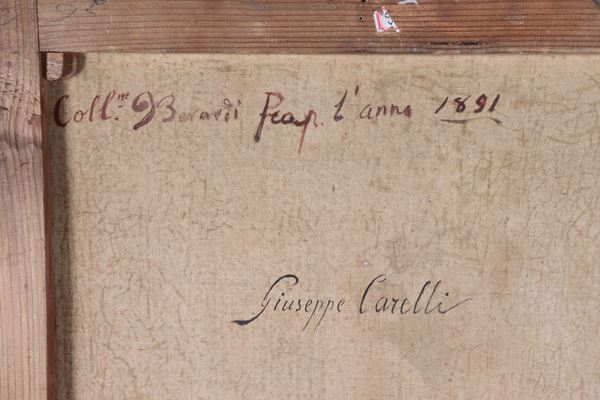 Coll.ne D Berardi Prap. l'anno 1891
Giuseppe Carelli